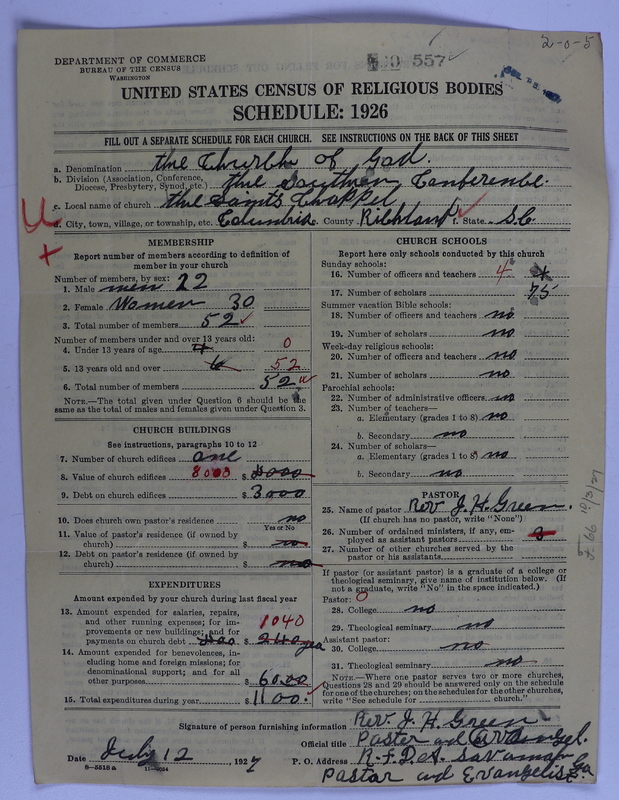 2-0-5
DEPARTMENT OF COMMERCE
BUREAU OF THE CENSUS
WASHINGTON
557
UNITED STATES CENSUS OF RELIGIOUS BODIES
SCHEDULE: 1926
FILL OUT A SEPARATE SCHEDULE FOR EACH CHURCH. SEE INSTRUCTIONS ON THE BACK OF THIS SHEET
a. Denomination the Church of God.
b. Division (Association, Conference, Diocese, Presbytery, Synod, etc.) the Southen Conference.
c. Local name of church the Saints Chappel
d. City, town, village, or township, etc. Columbia County Richland f. State S.C
MEMBERSHIP
Report number of members according to definition of
member in your church
Number of members, by sex:
1. Male men 22
2. Female Women 30
3. Total number of members 52
Number of members under and over 13 years old:
4. Under 13 years of age 0
5. 13 years old and over 52
6. Total number of members 52
NOTE.—The total given under Question 6 should be the
same as the total of males and females given under Question 3.
CHURCH BUILDINGS
See instructions, paragraphs 10 to 12
7. Number of church edifices one
8. Value of church edifices 8000 $ 8000
9. Debt on church edifices $ 3000
10. Does church own pastor's residence no
Yes or No
11. Value of pastor's residence (if owned by
church) $ no
12. Debt on pastor's residence (if owned by
church) $ no
EXPENDITURES
Amount expended by your church during last fiscal year
13. Amount expended for salaries, repairs,
and other running expenses; for im-
provements or new buildings; and for 1040
payments on church debt $ 240
14. Amount expended for benevolences, in-
cluding home and foreign missions; for
denominational support; and for all
other purposes $ 60.00
15. Total expenditures during year $ 1100.
CHURCH SCHOOLS
Report here only schools conducted by this church
Sunday schools:
16. Number of officers and teachers 4
17. Number of scholars 75
Summer vacation Bible schools:
18. Number of officers and teachers no
19. Number of scholars no
Week-day religious schools:
20. Number of officers and teachers no
21. Number of scholars no
Parochial schools:
22. Number of administrative officers no
23. Number of teachers—
a. Elementary (grades 1 to 8) no
b. Secondary no
24. Number of scholars—
a. Elementary (grades 1 to 8) no
b. Secondary no
PASTOR
25. Name of pastor Rev J. H. Green.
(If church has no pastor, write "None")
26. Number of ordained ministers, if any, em-
ployed as assistant pastors
27. Number of other churches served by the
pastor or his assistants
If pastor (or assistant pastor) is a graduate of a college or
theological seminary, give name of institution below. (If
not a graduate, write "No" in the space indicated.)
Pastor: 0
28. College no
29. Theological seminary no
Assistant pastor:
30. College no
31. Theological seminary no
NOTE.—Where one pastor serves two or more churches,
Questions 28 and 29 should be answered only on the schedule
for one of the churches; on the schedules for the other churches,
write "See schedule for church."
Signature of person furnishing information Rev. J. H. Green
Official title Paster and
Date July 12 1927 P. O. Address R.F.D. Savannah Ga
8—5518 a
Pastor and Evangelist